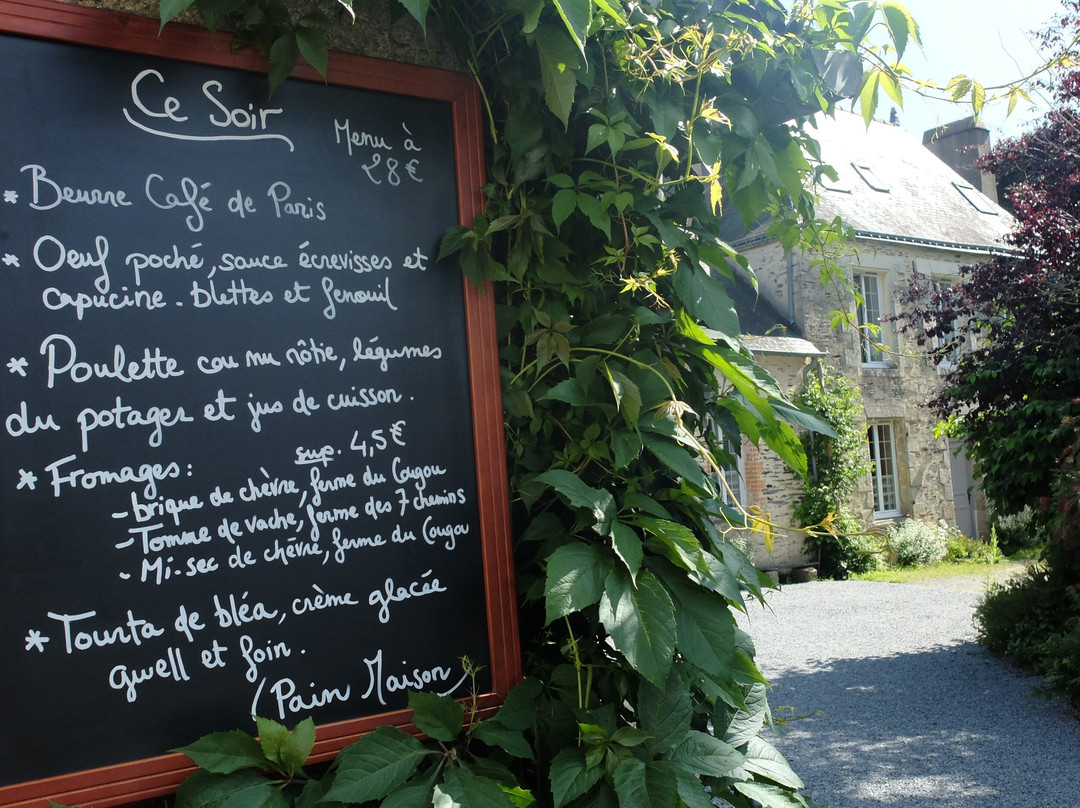 Ce Soir
Menu à
28€
* Beurre Café de Paris
* Oeuf poché, sauce écrevisses et
capucine. blettes et fenouil
* Poulette cou nu rôtie, légumes
du potager et jus de cuisson.
* Fromages: sup. 4,5€
- brique de chèvre, ferme du Cougou
- Tomme de vache, ferme des 7 chemins
- Mi-sec de chèvre, ferme du Cougou
* Tourta de bléa, crème glacée
gwell et foin.
(Pain Maison)